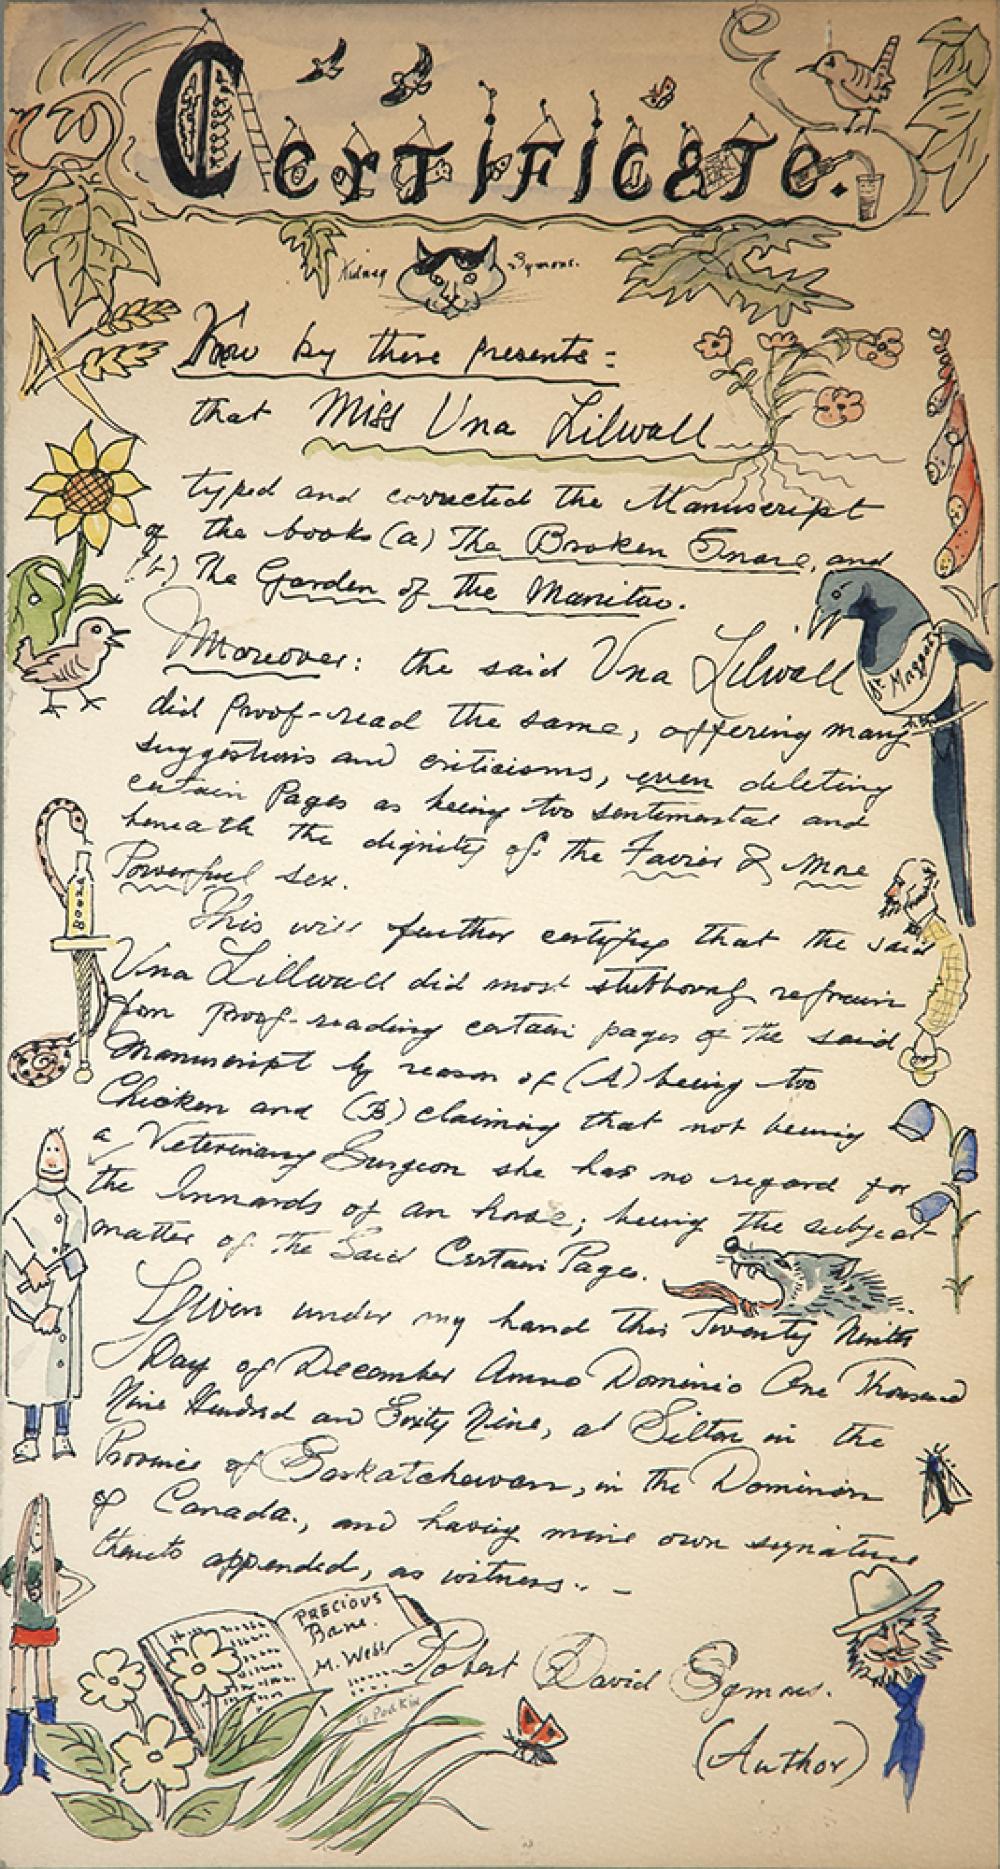 Certificate.
Kidney Symons.
Know by these presents:
that Miss Una Lilwall
typed and corrected the Manuscript
of the books (a) The Broken Snare, and
(b) The Garden of the Manitao.
Moreover: the said Una Lilwall
did proof-read the same, offering many
suggestions and criticisms, even deleting
certain Pages as being too sentimental and
beneath the dignity of the Fairer & More
Powerful sex.
This will further certify that the said
Una Lillwall did most stubbornly refrain
from proof-reading certain pages of the said
Manuscript by reason of (A) being too
Chicken and (B) claiming that not being
a Veterinary Surgeon she has no regard for
the Innards of an horse; being the subject-
matter of the Said Certain Pages.
Given under my hand this Twenty Ninth
Day of December Anno Dominio One Thousand
Nine Hundred and Sixty Nine, at Silton in the
Province of Saskatchewan, in the Dominion
of Canada, and having mine own signature
thereto appended, as witness..-
PRECIOUS
Bane.
M. Webb
Robert David Symons.
(Author)